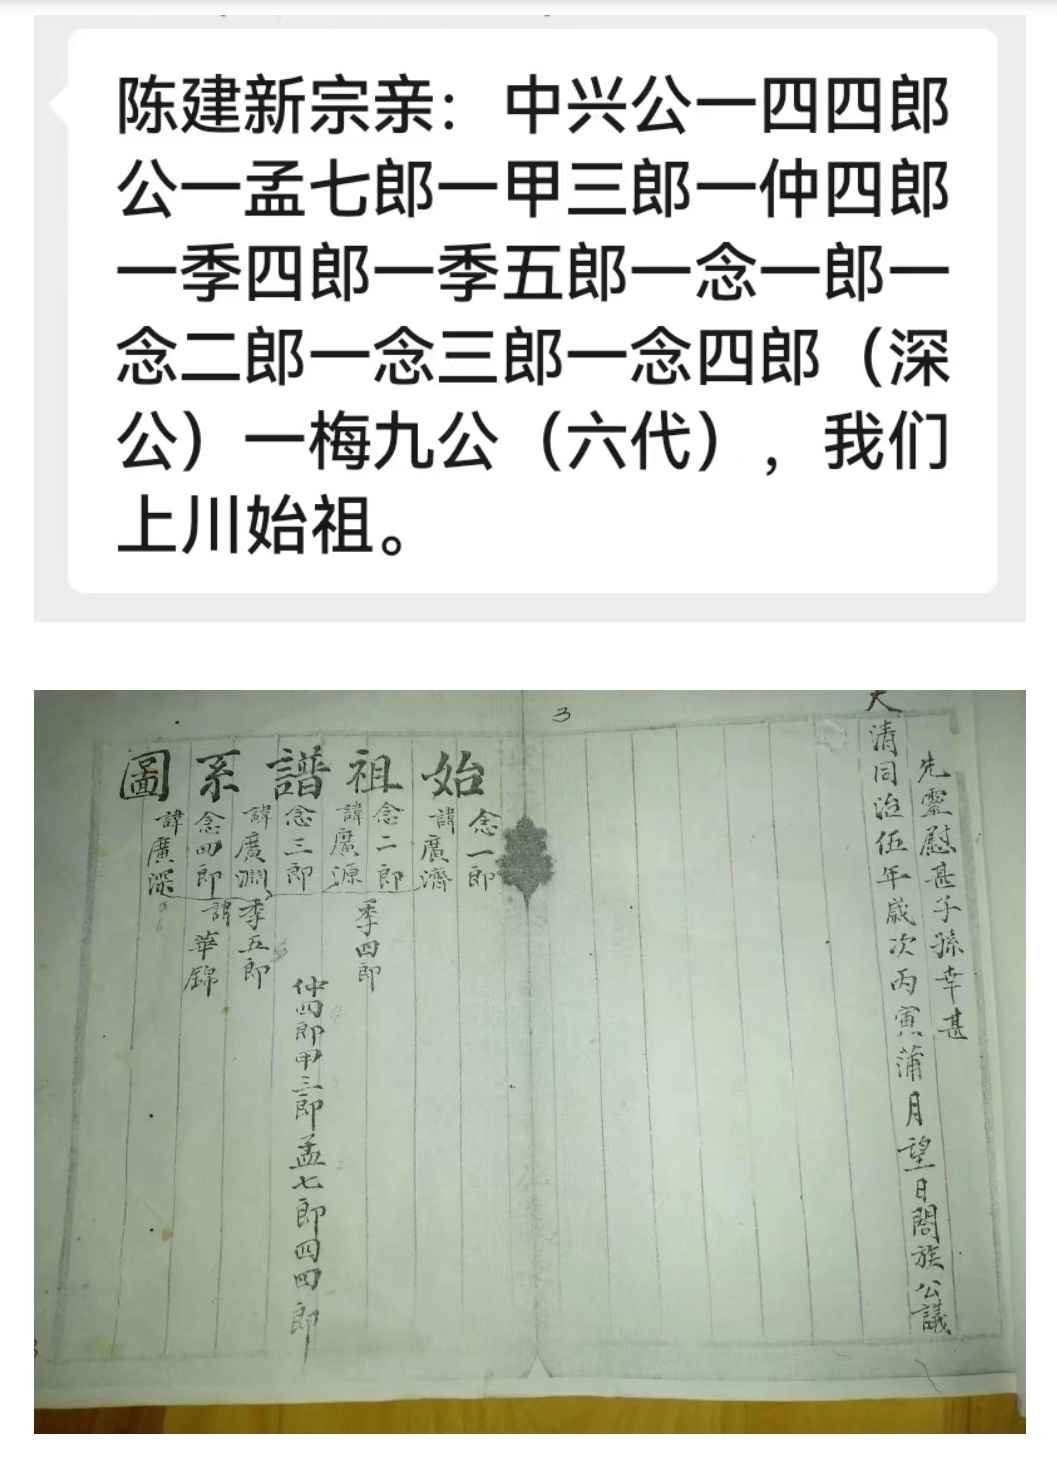 陈建新宗亲：中兴公一四四郎
公一孟七郎一甲三郎一仲四郎
一季四郎一季五郎一念一郎一
念二郎一念三郎一念四郎（深
公）一梅九公（六代），我们
上川始祖。
3
先霊慰甚子孫幸甚
大清同治伍年歲次丙寅蒲月望日閤族公議
始祖譜系圖
念一郎
諱廣濟
念二郎
諱廣源
念三郎
諱廣淵
念四郎
諱廣深
季四郎
季五郎
諱華錦
仲四郎甲三郎孟七郎四四郎